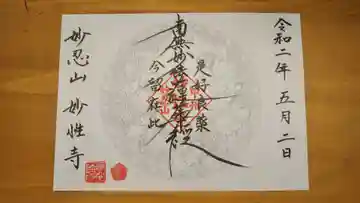 令和二年 五月二日
是好良薬
南無妙法蓮華経
今留在此
妙忍山 妙性寺